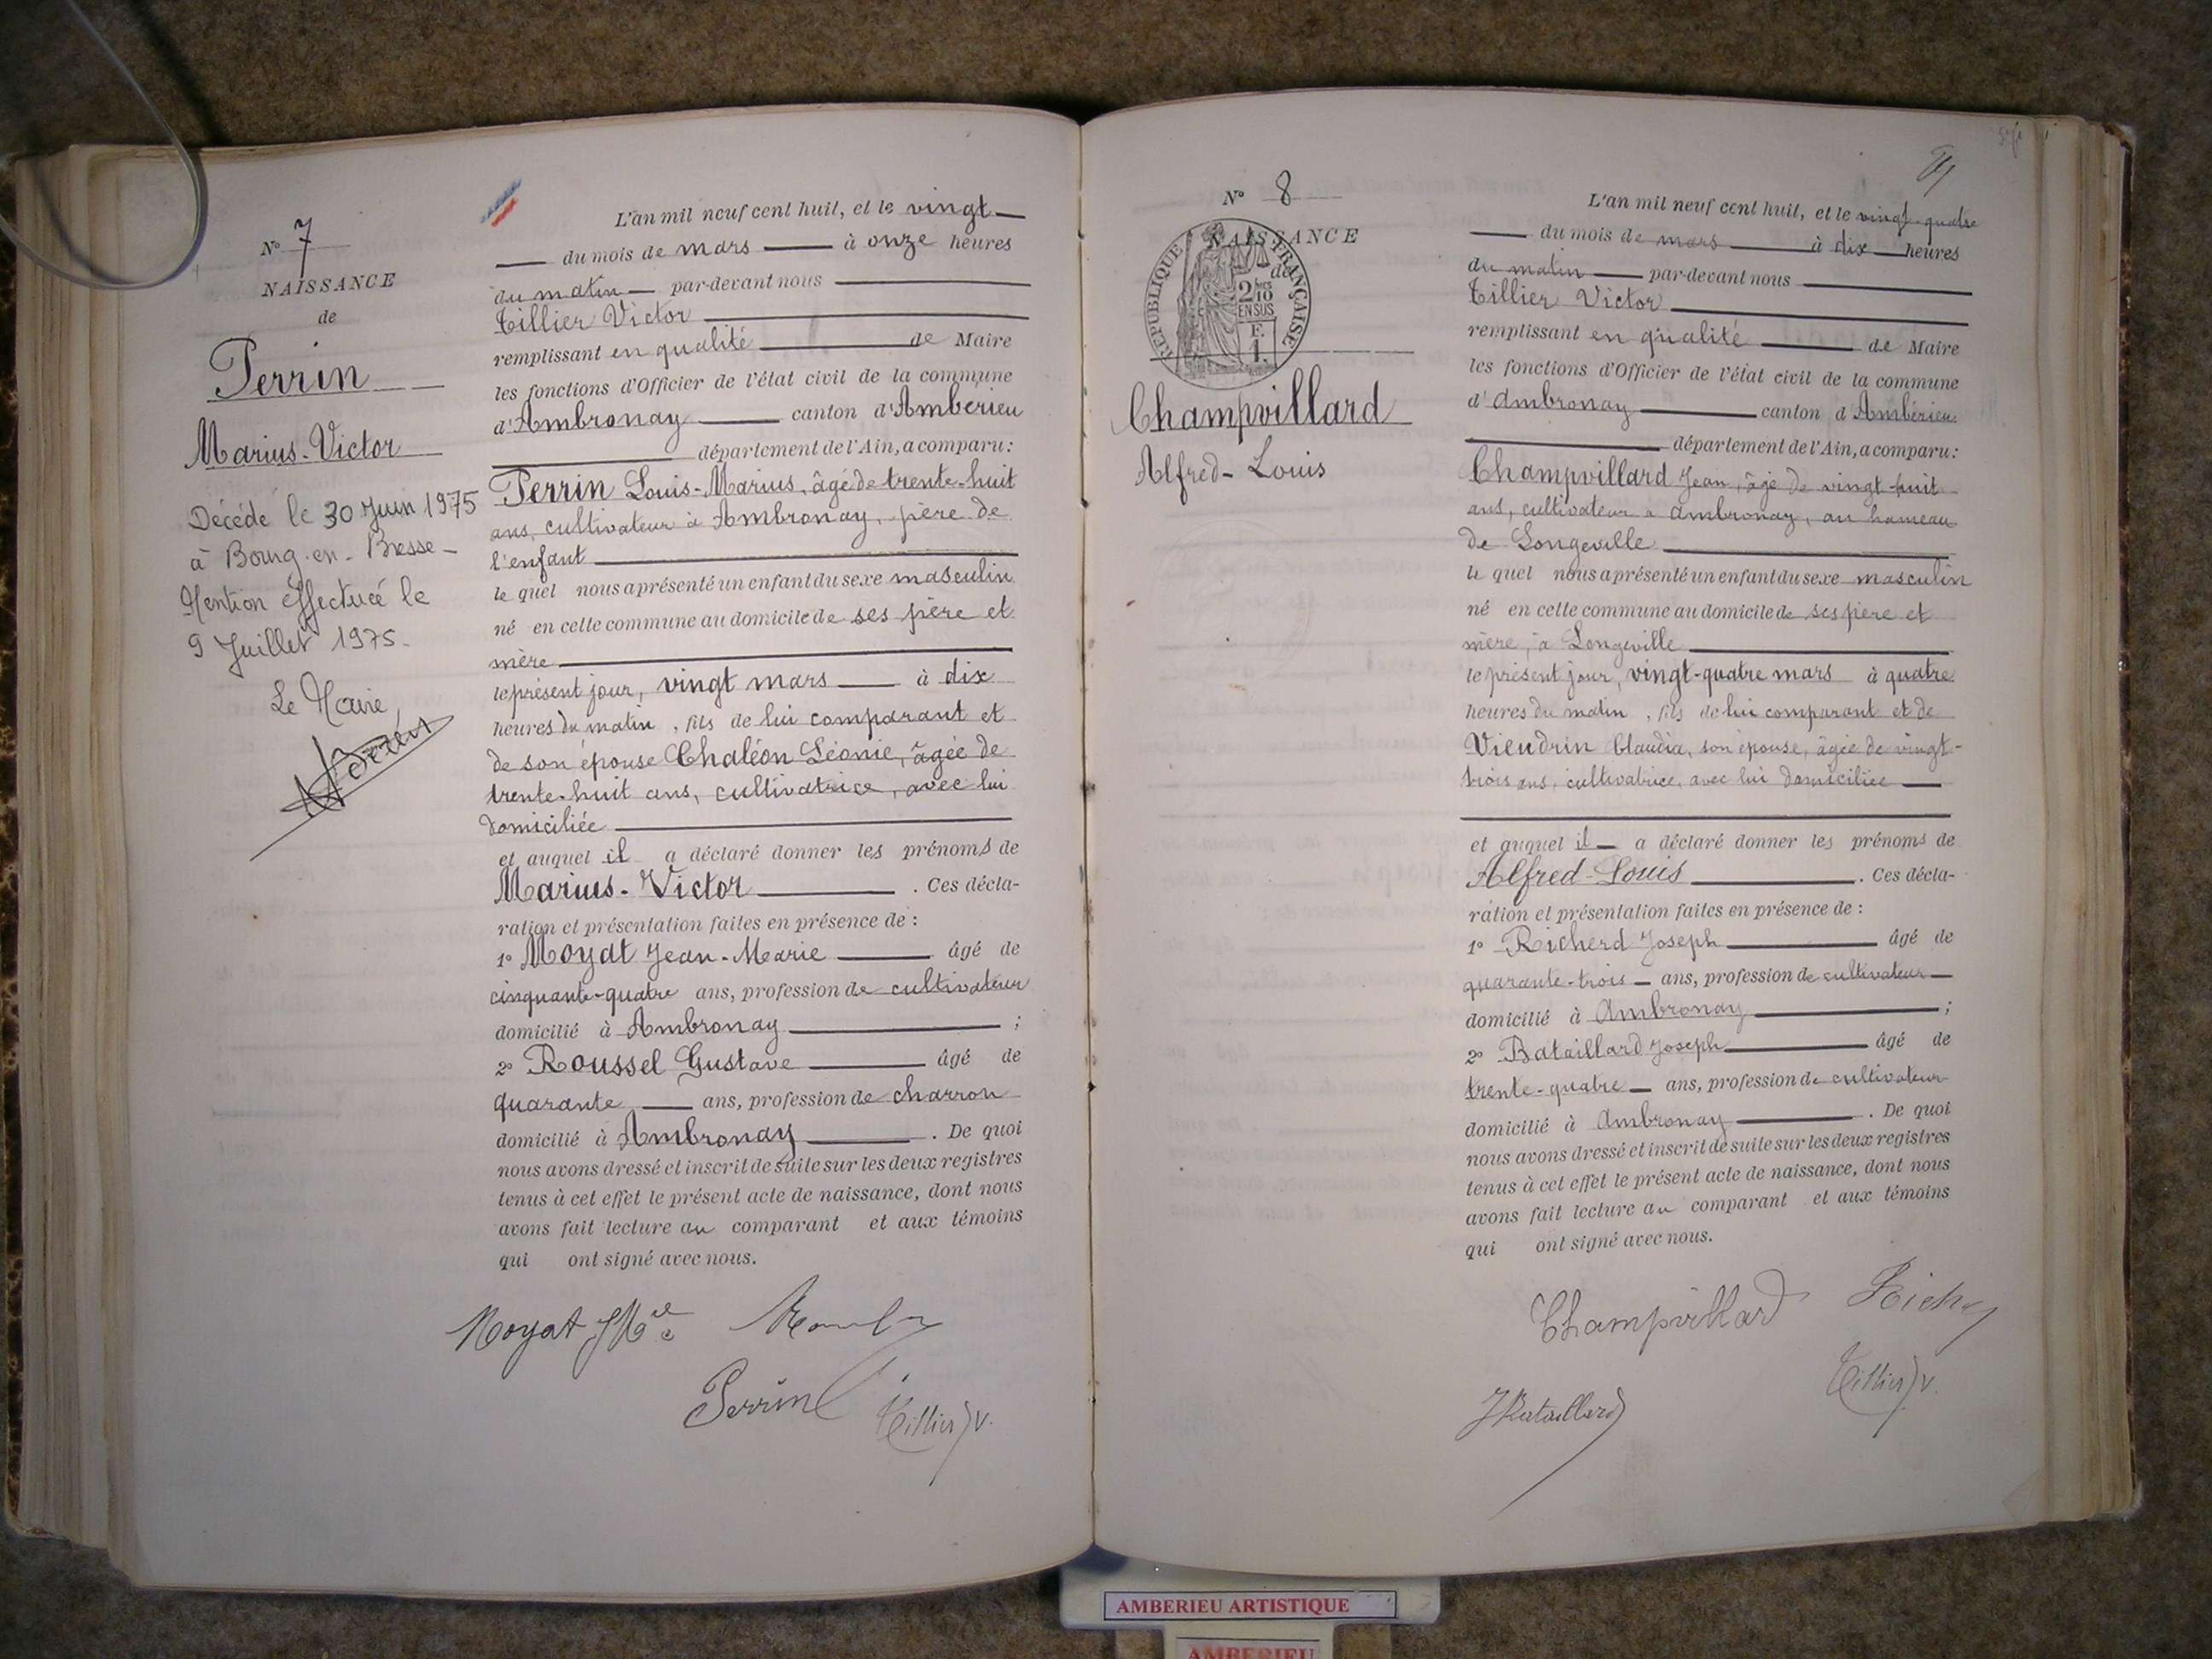 N° 7
NAISSANCE
de
Perrin
Marius-Victor
Décédé le 30 Juin 1975
à Bourg-en-Bresse-
Mention effectuée le
9 Juillet 1975.
Le Maire,
L'an mil neuf cent huit, et le vingt
du mois de mars à onze heures
du matin par-devant nous
Tillier Victor
remplissant en qualité de Maire
les fonctions d'Officier de l'état civil de la commune
d'Ambronay canton d'Ambérieu
département de l'Ain, a comparu:
Perrin Louis-Marius, âgé de trente-huit
ans, cultivateur à Ambronay, père de
l'enfant
le quel nous a présenté un enfant du sexe masculin
né en cette commune au domicile de ses père et
mère
le présent jour, vingt mars à dix
heures du matin, fils de lui comparant et
de son épouse Chaléon Léonie, âgée de
trente-huit ans, cultivatrice, avec lui
domiciliée
et auquel il a déclaré donner les prénoms de
Marius-Victor. Ces décla-
ration et présentation faites en présence de :
1° Moyat Jean-Marie âgé de
cinquante-quatre ans, profession de cultivateur
domicilié à Ambronay ;
2° Roussel Gustave âgé de
quarante ans, profession de charron
domicilié à Ambronay. De quoi
nous avons dressé et inscrit de suite sur les deux registres
tenus à cet effet le présent acte de naissance, dont nous
avons fait lecture au comparant et aux témoins
qui ont signé avec nous.
Moyat
Perrin Tillier V.
N° 8
NAISSANCE
de
REPUBLIQUE FRANÇAISE
2/10
EN SUS
F.
1.
Champvillard
Alfred-Louis
L'an mil neuf cent huit, et le vingt-quatre
du mois de mars à dix heures
du matin par-devant nous
Tillier Victor
remplissant en qualité de Maire
les fonctions d'Officier de l'état civil de la commune
d'Ambronay canton d'Ambérieu
département de l'Ain, a comparu:
Champvillard Jean, âgé de vingt-huit
ans, cultivateur à Ambronay, au hameau
de Longeville
le quel nous a présenté un enfant du sexe masculin
né en cette commune au domicile de ses père et
mère, à Longeville
le présent jour, vingt-quatre mars à quatre
heures du matin, fils de lui comparant et de
Vieudrin Claudia, son épouse, âgée de vingt-
trois ans, cultivatrice, avec lui domiciliée
et auquel il a déclaré donner les prénoms de
Alfred-Louis. Ces décla-
ration et présentation faites en présence de :
1° Richerd Joseph âgé de
quarante-trois ans, profession de cultivateur
domicilié à Ambronay ;
2° Bataillard Joseph âgé de
trente-quatre ans, profession de cultivateur
domicilié à Ambronay. De quoi
nous avons dressé et inscrit de suite sur les deux registres
tenus à cet effet le présent acte de naissance, dont nous
avons fait lecture au comparant et aux témoins
qui ont signé avec nous.
Champvillard
Tillier V.
J Bataillard
AMBERIEU ARTISTIQUE
AMBERIEU